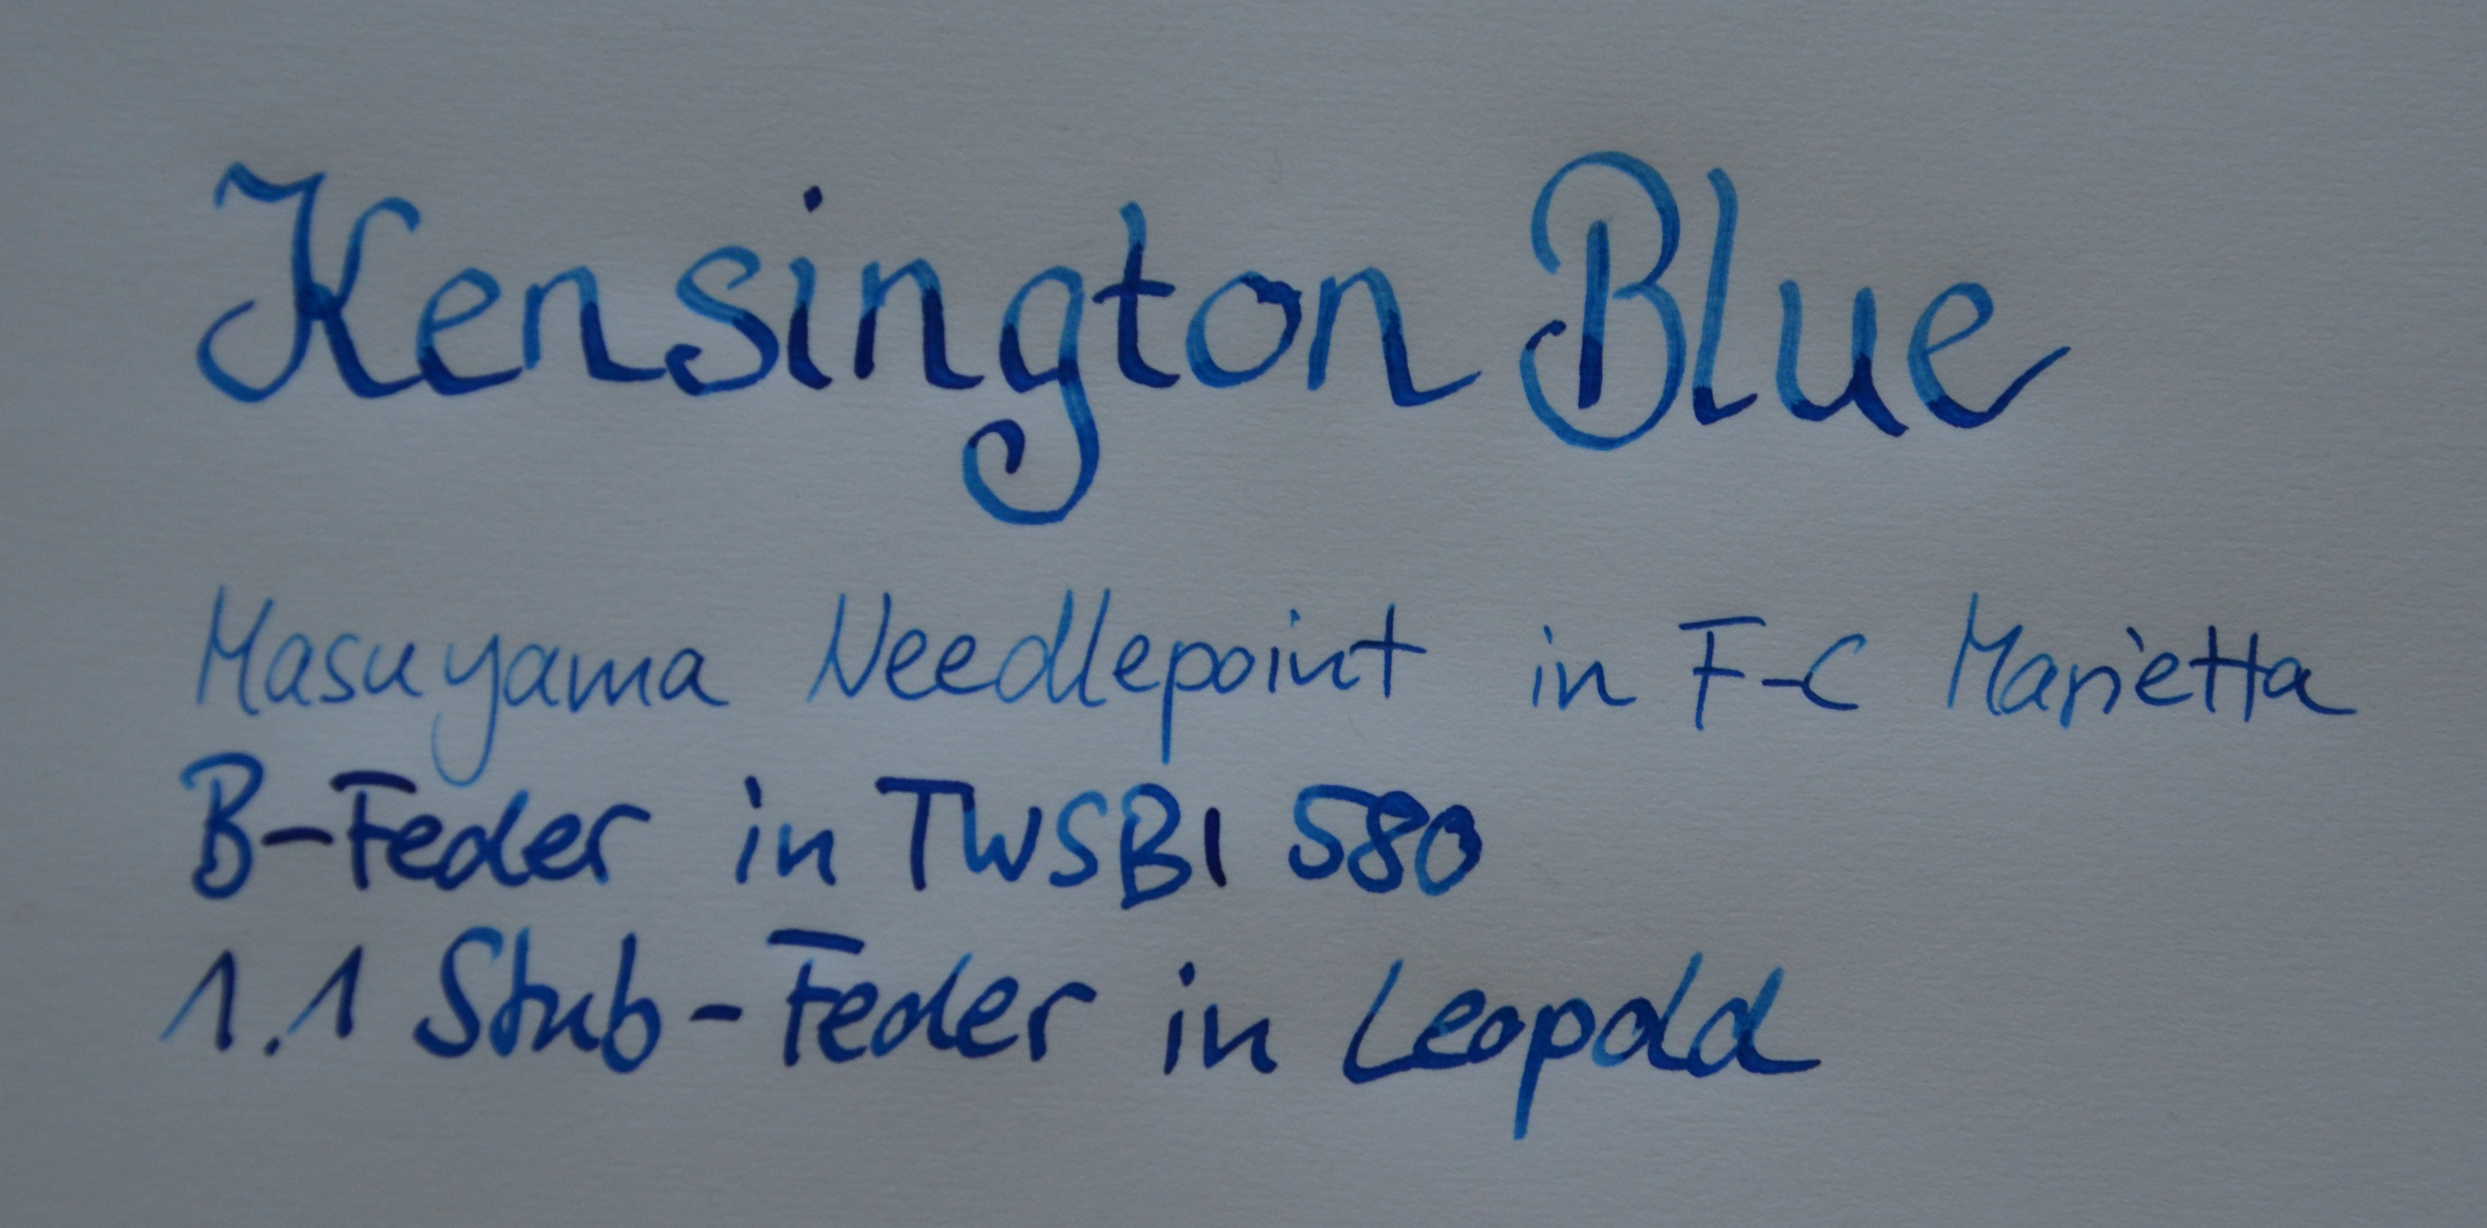 Kensington Blue
Masuyama Needlepoint in F-C Marietta
B-Feder in TWSBI 580
1.1 Stub-Feder in Leopold